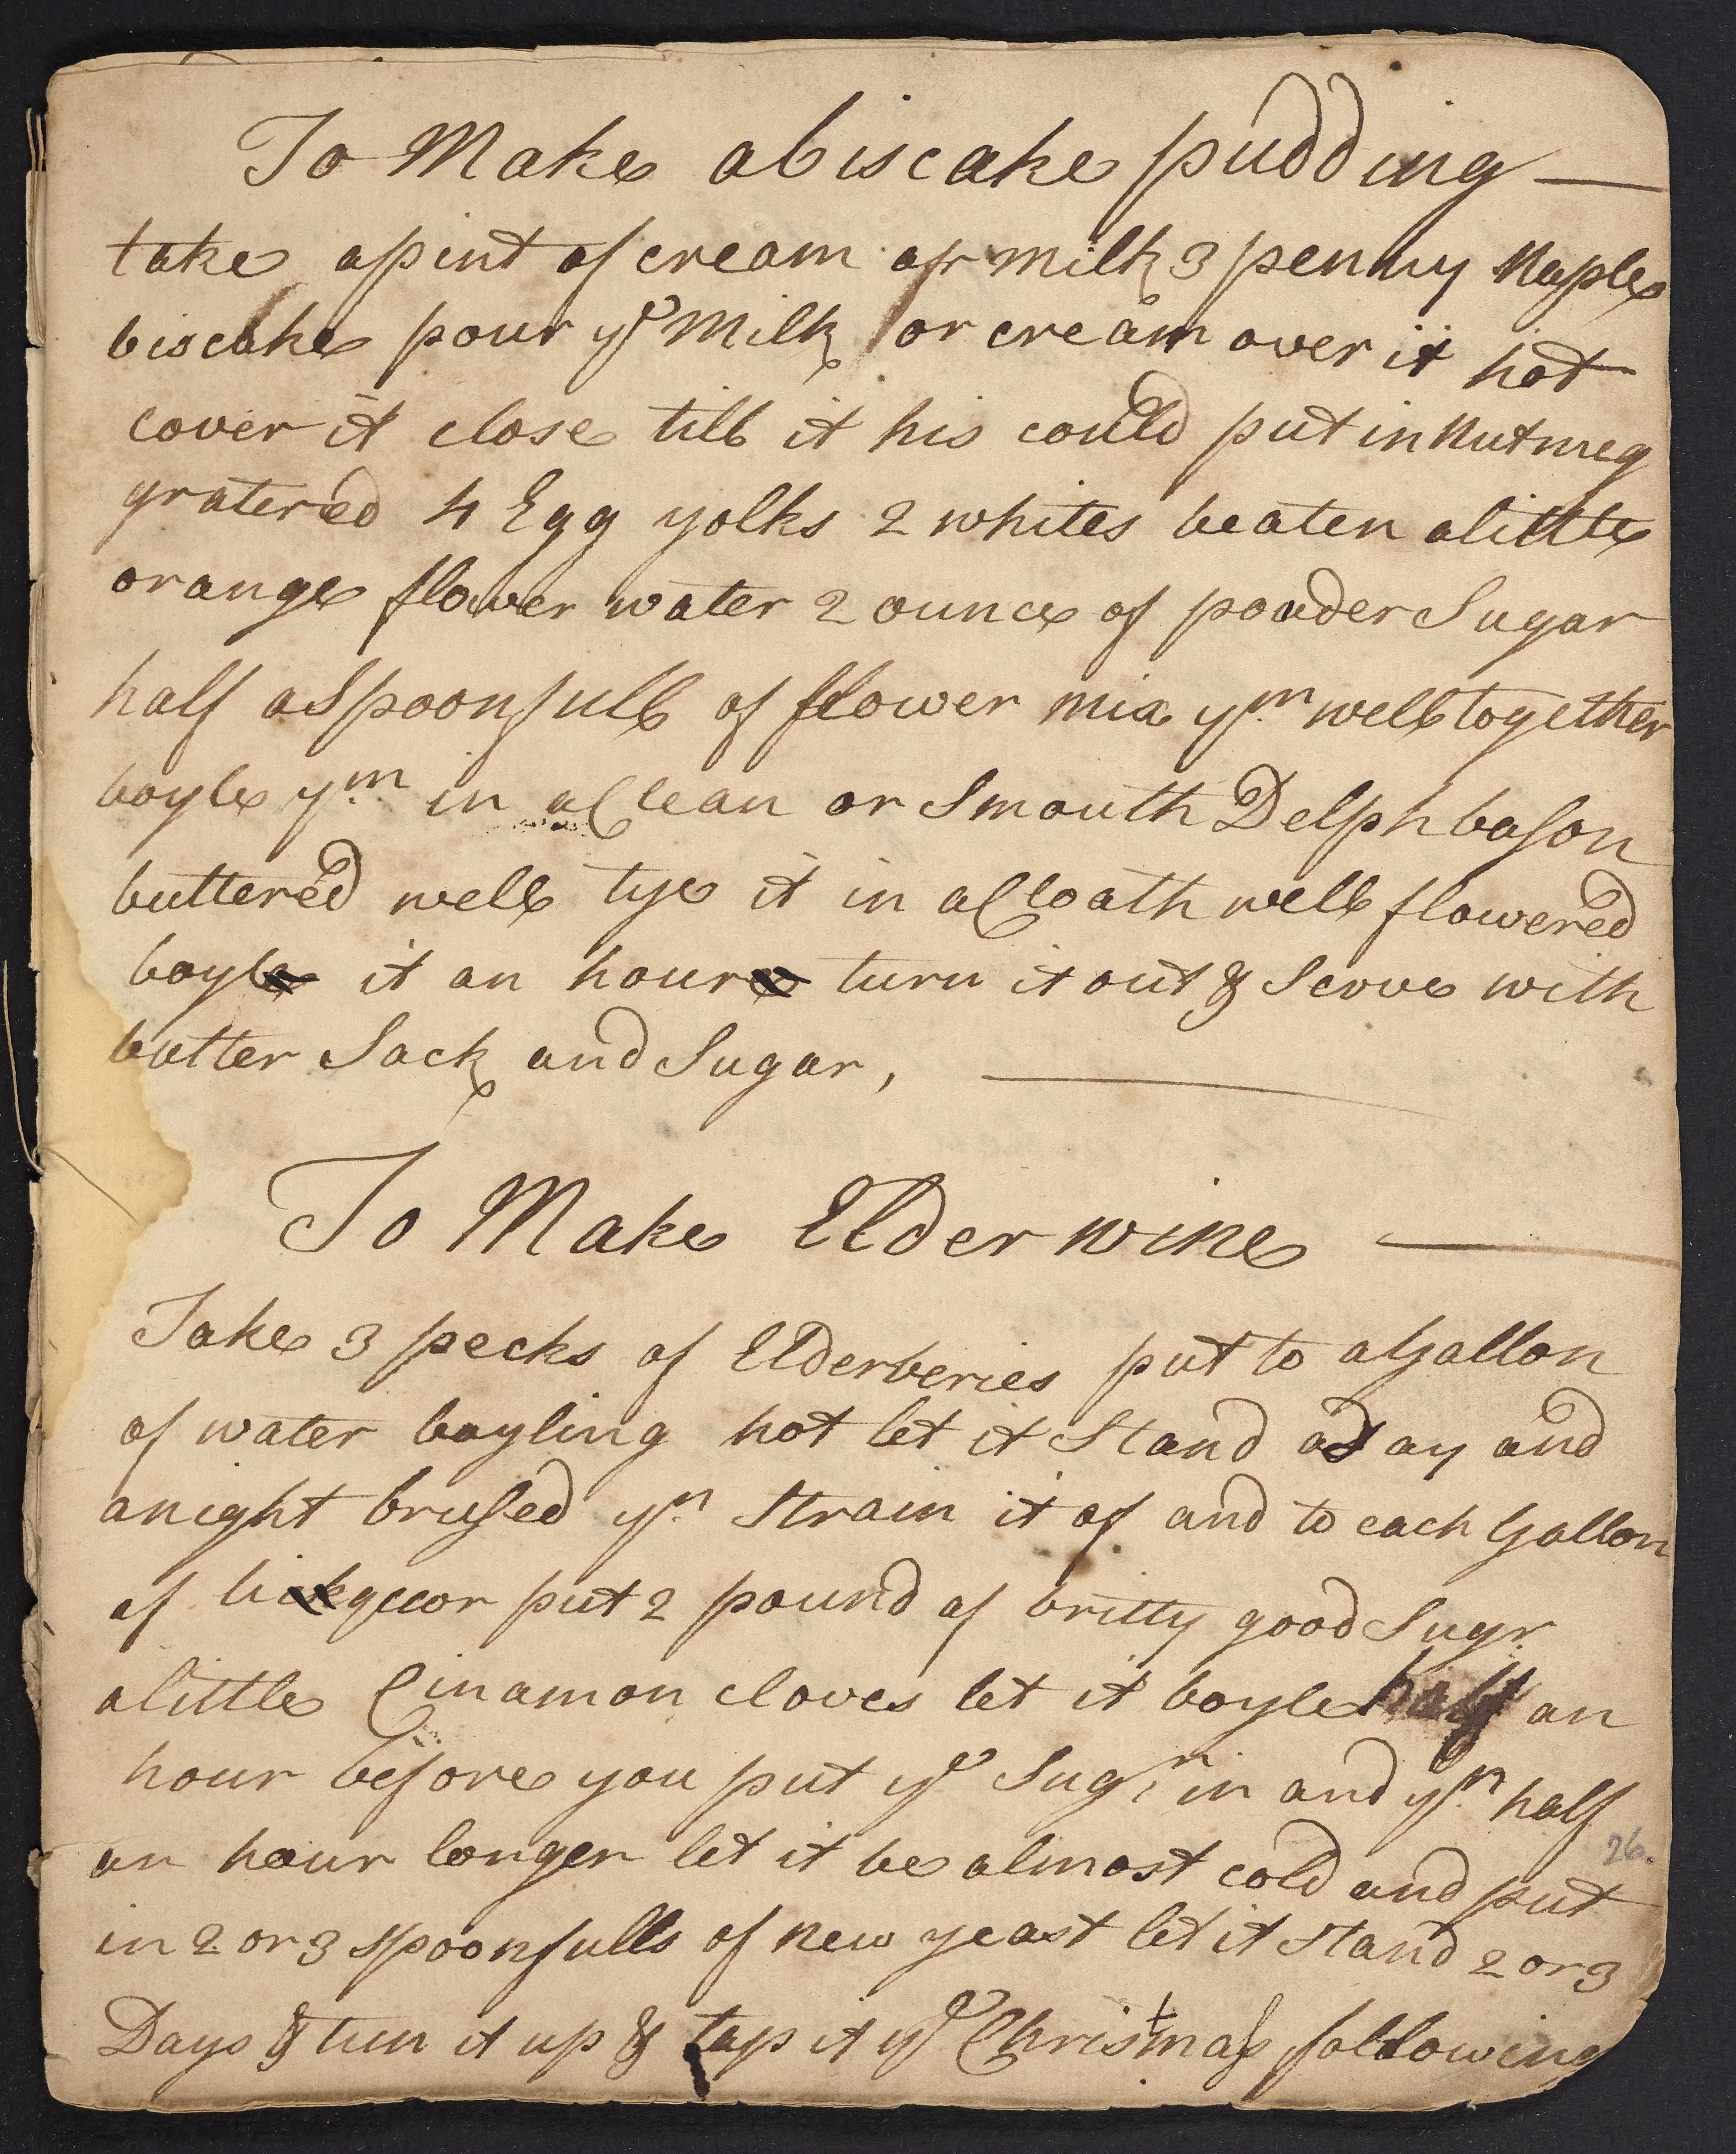 To Make abiscake pudding —
take apint of cream or milk 3 penny Naple
biscake pour ye Milk or cream over it hot
cover it close till it his could put in Nutmeg
gratered 4 Egg yolks 2 whites beaten alittle
orange flower water 2 ounce of pouder Sugar
half aSpoonfull of flower mix ym well together
boyle ym in aClean or Smouth Delph bason
buttered well tye it in aCloath well flowered
boyl it an hour turn it out & Serve with
butter Sack and Sugar,
To Make Elder wine —
Take 3 pecks of Elderberies put to aGallon
of water boyling hot let it Stand aday and
anight brused yn Strain it of and to each Gallon
of liquor put 2 pound of britty good Sugr
alittle Cinamon cloves let it boyle half an
hour before you put ye Sugr in and yn half
an hour longer let it be almost cold and put
26.
in 2 or 3 spoonfulls of new yeast let it stand 2 or 3
Days & tun it up & tap it ye Christmas following